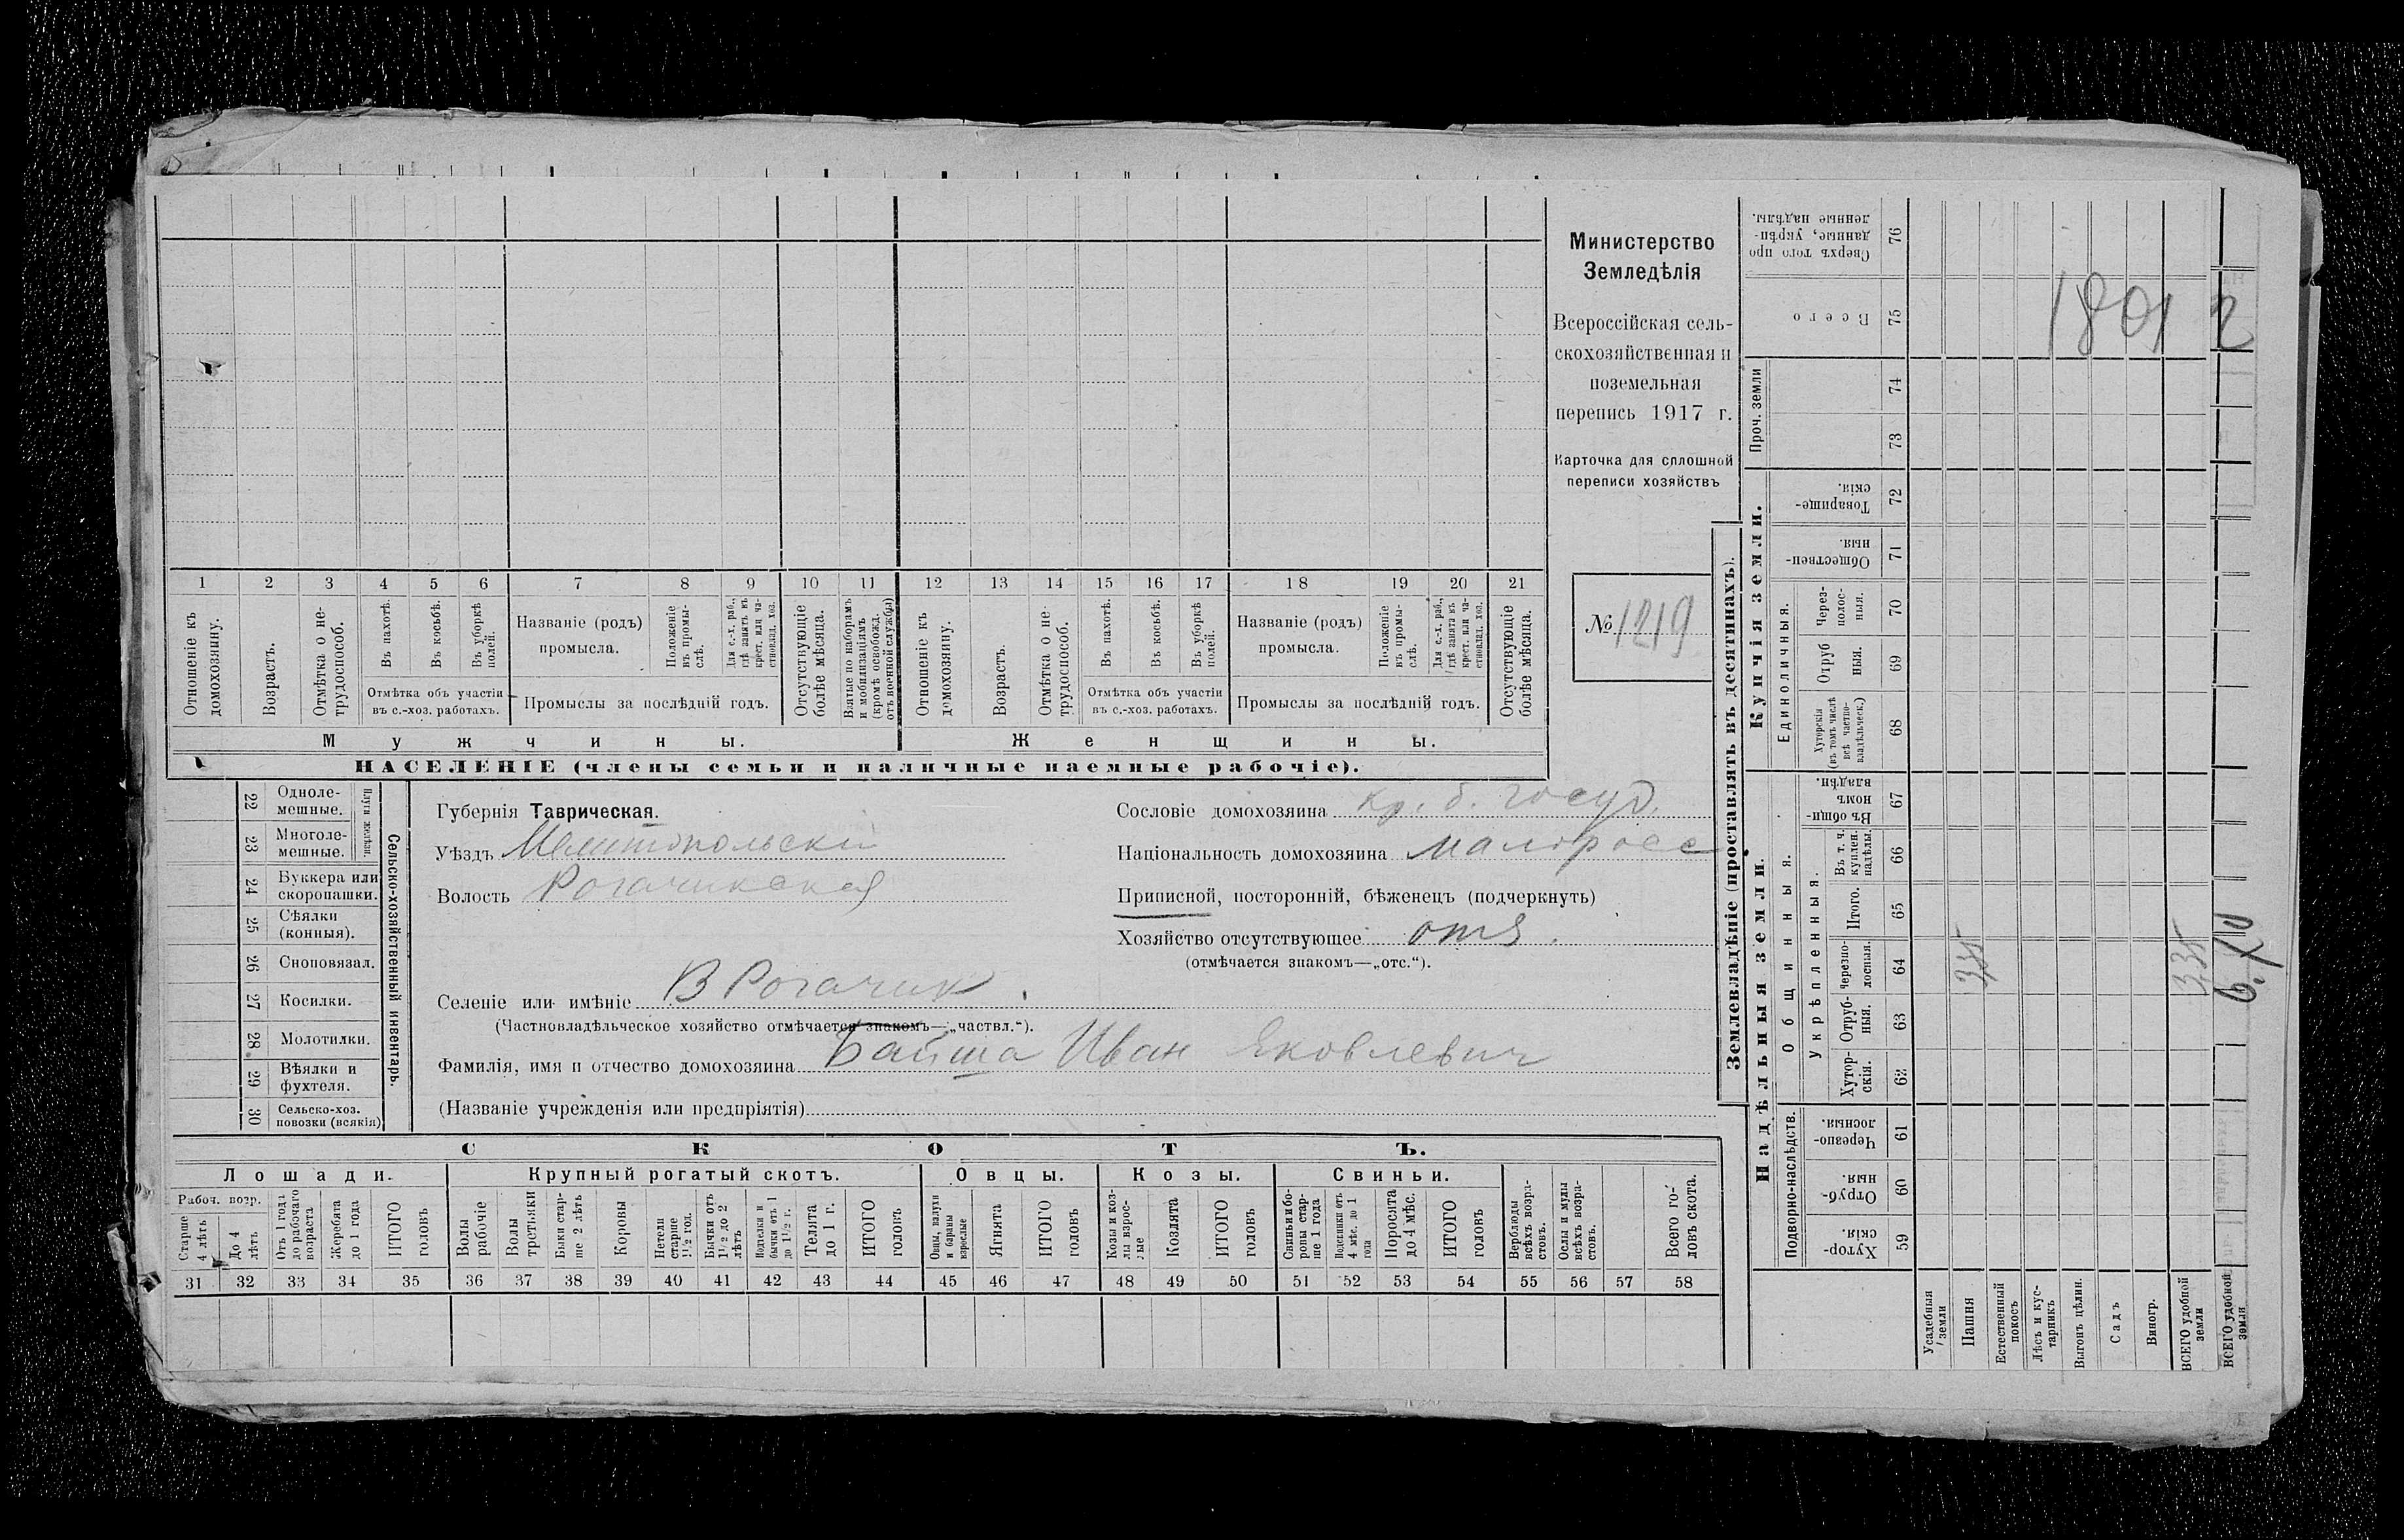 1 2 3 4 5 6 7 8 9 10 11 12 13 14 15 16 17 18 19 20 21
Отношеніе къ домохозяину.
Возрастъ.
Отмѣтка о нетрудоспособ.
Въ пахотѣ.
Въ косьбѣ.
Въ уборкѣ полей.
Отмѣтка объ участіи
въ с.-хоз. работахъ.
Названіе (родъ)
промысла.
Положеніе въ промыслѣ.
Для с.-х. раб., гдѣ занятъ въ крест. или частновлад. хоз.
Промыслы за послѣдній годъ.
Отсутствующіе болѣе мѣсяца.
Взятые по наборамъ и мобилизаціямъ (кромѣ освобожд. отъ военной службы)
Отношеніе къ домохозяину.
Возрастъ.
Отмѣтка о нетрудоспособ.
Въ пахотѣ.
Въ косьбѣ.
Въ уборкѣ полей.
Отмѣтка объ участіи
въ с.-хоз. работахъ.
Названіе (родъ)
промысла.
Положеніе въ промыслѣ.
Для с.-х. раб., гдѣ занята въ крест. или частновлад. хоз.
Промыслы за послѣдній годъ.
Отсутствующіе болѣе мѣсяца.
Мужчины.
Женщины.
НАСЕЛЕНІЕ (члены семьи и наличные наемные рабочіе).
Министерство
Земледѣлія
Всероссійская сель-
скохозяйственная и
поземельная
перепись 1917 г.
Карточка для сплошной
переписи хозяйствъ
№ 1219
22 Однолемешные.
23 Многолемешные.
Плуги желѣзн.
24 Буккера или скоропашки.
25 Сѣялки (конныя).
26 Сноповязал.
27 Косилки.
28 Молотилки.
29 Вѣялки и фухтеля.
30 Сельско-хоз. повозки (всякія)
Сельско-хозяйственный инвентарь.
Губернія Таврическая.
Уѣздъ Мелитопольскій
Волость Рогачикская
Селеніе или имѣніе В Рогачик.
(Частновладѣльческое хозяйство отмѣчается знакомъ—„частвл.“).
Фамилія, имя и отчество домохозяина Байша Иван Яковлевич
(Названіе учрежденія или предпріятія)
Сословіе домохозяина кр. б. госуд.
Національность домохозяина малоросс
Приписной, посторонній, бѣженецъ (подчеркнуть)
Хозяйство отсутствующее отс.
(отмѣчается знакомъ—„отс.“).
СКОТЪ.
Лошади.
Крупный рогатый скотъ.
Овцы.
Козы.
Свиньи.
Рабоч. возр.
Старше 4 лѣтъ
До 4 лѣтъ
Отъ 1 года до рабочаго возраста
Жеребята до 1 года
ИТОГО головъ
Волы рабочіе
Волы третьяки
Быки старше 2 лѣтъ
Коровы
Нетели старше 1½ год.
Бычки отъ 1½ до 2 лѣтъ
Подтелки и бычки отъ 1 до 1½ г.
Телята до 1 г.
ИТОГО головъ
Овцы, валухи и бараны взрослые
Ягнята
ИТОГО головъ
Козы и козлы взрослые
Козлята
ИТОГО головъ
Свиньи и боровы старше 1 года
Подсвинки отъ 4 мѣс. до 1 года
Поросята до 4 мѣс.
ИТОГО головъ
Верблюды всѣхъ возрастовъ.
Ослы и мулы всѣхъ возрастовъ.
Всего головъ скота.
31 32 33 34 35 36 37 38 39 40 41 42 43 44 45 46 47 48 49 50 51 52 53 54 55 56 57 58
Землевладѣніе (проставлять въ десятинахъ).
Купчія земли.
Надѣльныя земли.
Проч. земли
Единоличныя.
Общинныя.
Укрѣпленныя.
Подворно-наслѣдств.
Сверхъ того проданные, укрѣпленные надѣлы. 76
Всего 75
74
73
Товарищескія. 72
Общественныя. 71
Черезполосныя. 70
Отрубныя. 69
Хуторскія (въ томъ числѣ всѣ частновладѣльческ.) 68
Въ общинномъ владѣн. 67
Въ т. ч. куплен. надѣлы. 66
Итого. 65
Черезполосныя. 64
Отрубныя. 63
Хуторскія. 62
Черезполосныя. 61
Отрубныя. 60
Хуторскія. 59
Усадебныя земли
Пашня
Естественный покосъ
Лѣсъ и кустарникъ
Выгонъ цѣлин.
Садъ
Виногр.
ВСЕГО удобной земли
ВСЕГО удобной земли
1801
335
335